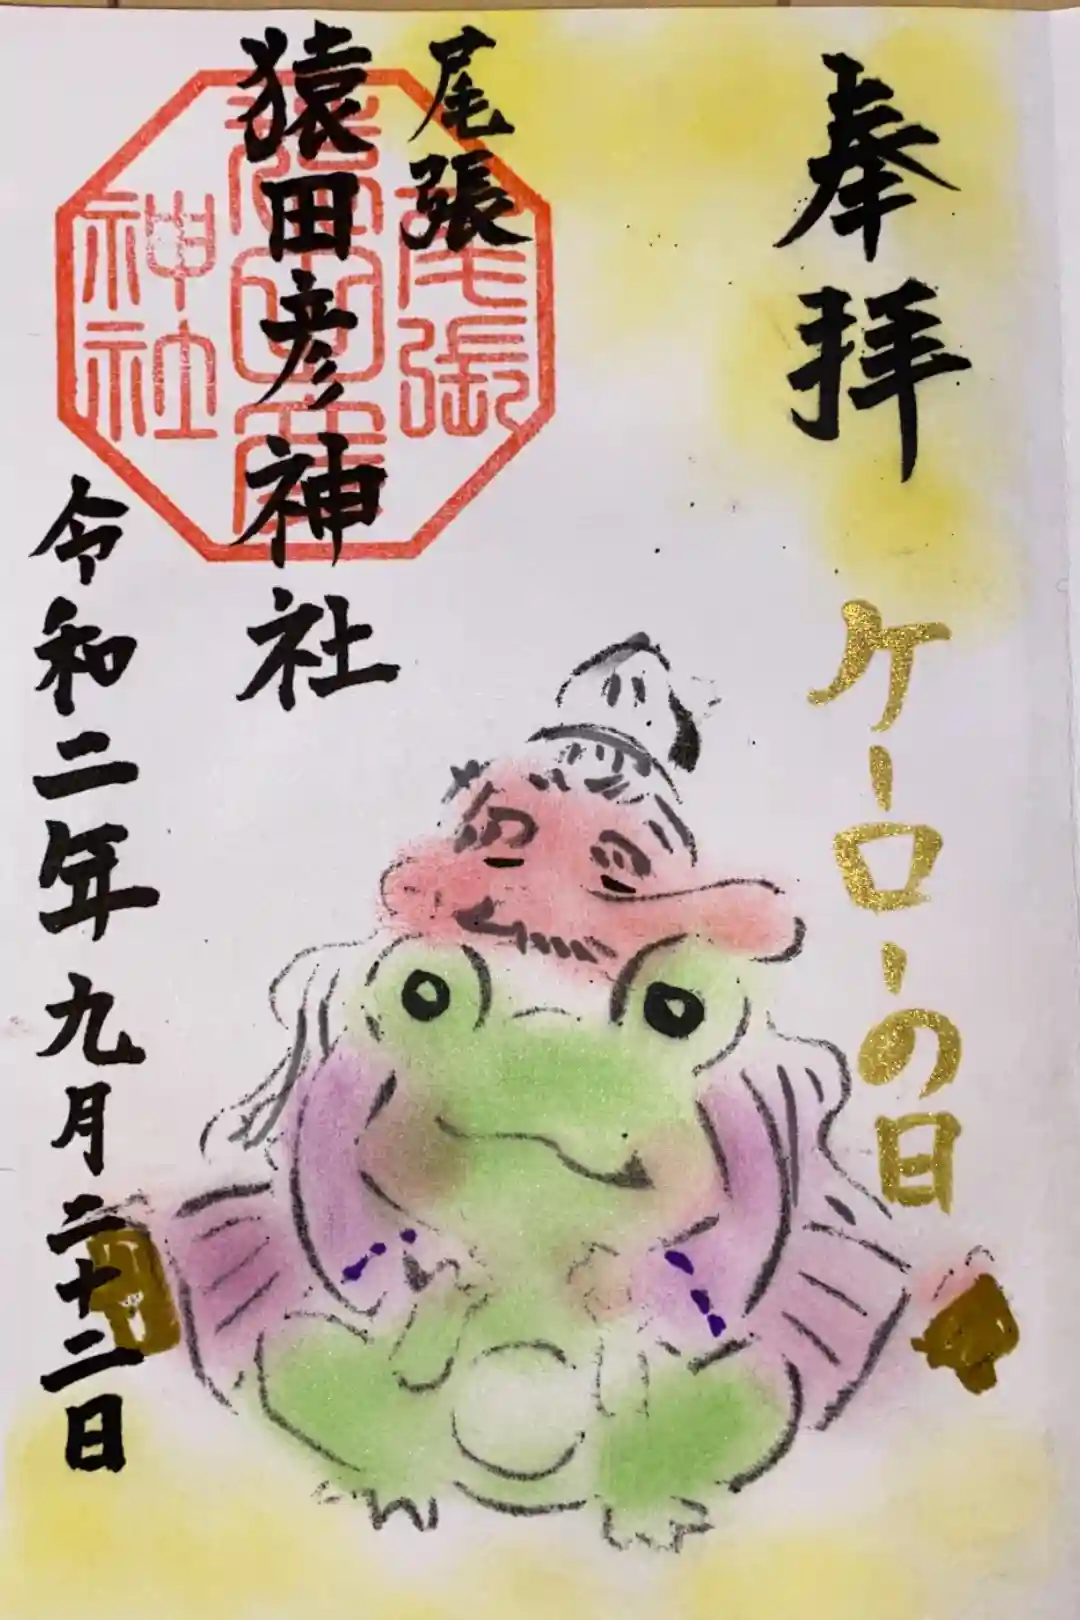 奉拝
ケーローの日
尾張
猿田彦神社
尾張
猿田彦
神社
令和二年九月二十二日